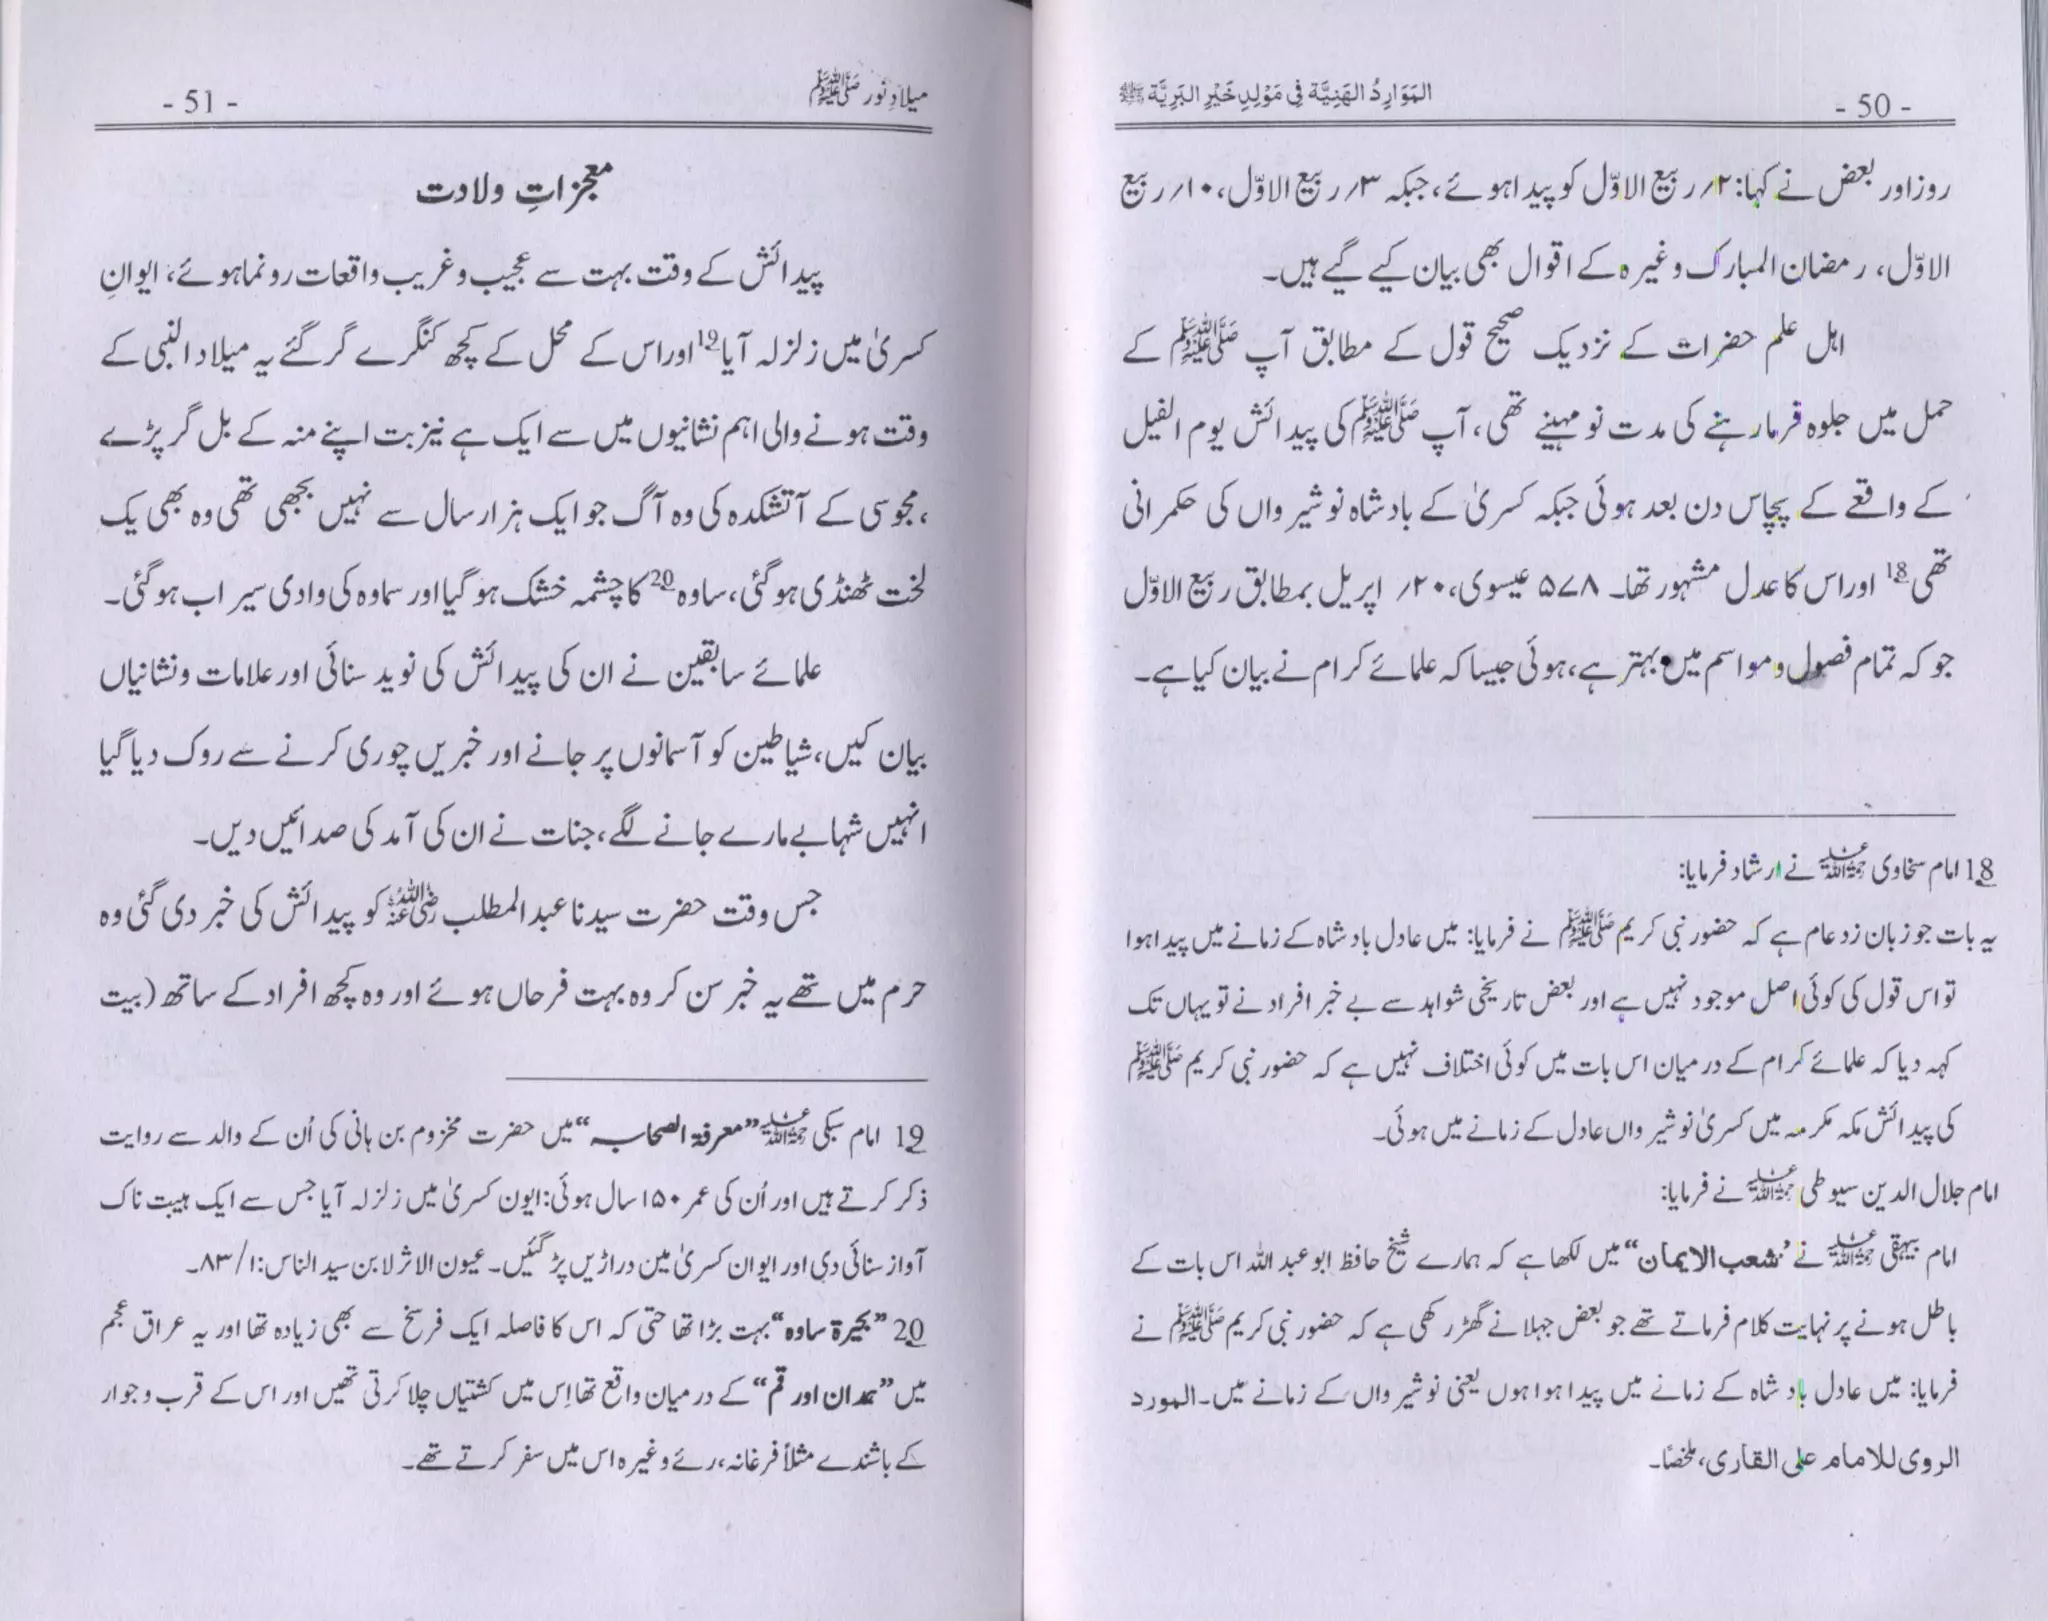 - 50 -
المَوَارِدُ الهَنِيَّة فِي مَوْلِدِ خَيْرِ البَرِيَّة ﷺ
روز اور بعض نے کہا: ۲/ ربیع الاوّل کو پیدا ہوئے، جبکہ ۳/ ربیع الاوّل، ۱۰/ ربیع
الاوّل، رمضان المبارک وغیرہ کے اقوال بھی بیان کیے گیے ہیں۔
اہل علم حضرات کے نزدیک صحیح قول کے مطابق آپ ﷺ کے
حمل میں جلوہ فرما رہنے کی مدت نو مہینے تھی، آپ ﷺ کی پیدائش یوم الفیل
کے واقعے کے پچاس دن بعد ہوئی جبکہ کسریٰ کے بادشاہ نوشیرواں کی حکمرانی
تھی 18 اور اس کا عدل مشہور تھا۔ ۵۷۸ عیسوی، ۲۰/ اپریل بمطابق ربیع الاوّل
جو کہ تمام فصول و مواسم میں بہتر ہے، ہوئی جیسا کہ علمائے کرام نے بیان کیا ہے۔
18 امام سخاوی رحمۃ اللہ علیہ نے ارشاد فرمایا:
یہ بات جو زبان زد عام ہے کہ حضور نبی کریم ﷺ نے فرمایا: میں عادل بادشاہ کے زمانے میں پیدا ہوا
تو اس قول کی کوئی اصل موجود نہیں ہے اور بعض تاریخی شواہد سے بے خبر افراد نے تو یہاں تک
کہہ دیا کہ علمائے کرام کے درمیان اس بات میں کوئی اختلاف نہیں ہے کہ حضور نبی کریم ﷺ
کی پیدائش مکہ مکرمہ میں کسریٰ نوشیرواں عادل کے زمانے میں ہوئی۔
امام جلال الدین سیوطی رحمۃ اللہ علیہ نے فرمایا:
امام بیہقی رحمۃ اللہ علیہ نے ”شعب الایمان“ میں لکھا ہے کہ ہمارے شیخ حافظ ابو عبد اللہ اس بات کے
باطل ہونے پر نہایت کلام فرماتے تھے جو بعض جہلا نے گھڑ رکھی ہے کہ حضور نبی کریم ﷺ نے
فرمایا: میں عادل بادشاہ کے زمانے میں پیدا ہوا ہوں یعنی نوشیرواں کے زمانے میں۔ المورد
الروی للامام علی القاری، ملخصًا۔
میلادِ نور ﷺ
- 51 -
معجزاتِ ولادت
پیدائش کے وقت بہت سے عجیب و غریب واقعات رونما ہوئے، ایوانِ
کسریٰ میں زلزلہ آیا 19 اور اس کے محل کے کچھ کنگرے گر گئے یہ میلاد النبی کے
وقت ہونے والی اہم نشانیوں میں سے ایک ہے نیز بت اپنے منہ کے بل گر پڑے
، مجوسی کے آتشکدہ کی وہ آگ جو ایک ہزار سال سے نہیں بجھی تھی وہ بھی یک
لخت ٹھنڈی ہوگئی، ساوہ 20 کا چشمہ خشک ہو گیا اور سماوہ کی وادی سیراب ہوگئی۔
علمائے سابقین نے ان کی پیدائش کی نوید سنائی اور علامات و نشانیاں
بیان کیں، شیاطین کو آسمانوں پر جانے اور خبریں چوری کرنے سے روک دیا گیا
انہیں شہابے مارے جانے لگے، جنات نے ان کی آمد کی صدائیں دیں۔
جس وقت حضرت سیدنا عبد المطلب رضی اللہ عنہ کو پیدائش کی خبر دی گئی وہ
حرم میں تھے یہ خبر سن کر وہ بہت فرحاں ہوئے اور وہ کچھ افراد کے ساتھ (بیت
19 امام سبکی رحمۃ اللہ علیہ ”معرفۃ الصحابہ“ میں حضرت مخزوم بن ہانی کی اُن کے والد سے روایت
ذکر کرتے ہیں اور اُن کی عمر ۱۵۰ سال ہوئی: ایون کسریٰ میں زلزلہ آیا جس سے ایک ہیبت ناک
آواز سنائی دی اور ایوان کسریٰ میں دراڑیں پڑ گئیں۔ عیون الاثر لابن سید الناس: ۱/ ۸۳۔
20 ”بحیرۃ ساوہ“ بہت بڑا تھا حتی کہ اس کا فاصلہ ایک فرسخ سے بھی زیادہ تھا اور یہ عراق عجم
میں ”ہمدان اور قم“ کے درمیان واقع تھا اِس میں کشتیاں چلا کرتی تھیں اور اس کے قرب و جوار
کے باشندے مثلاً فرغانہ، رے وغیرہ اس میں سفر کرتے تھے۔